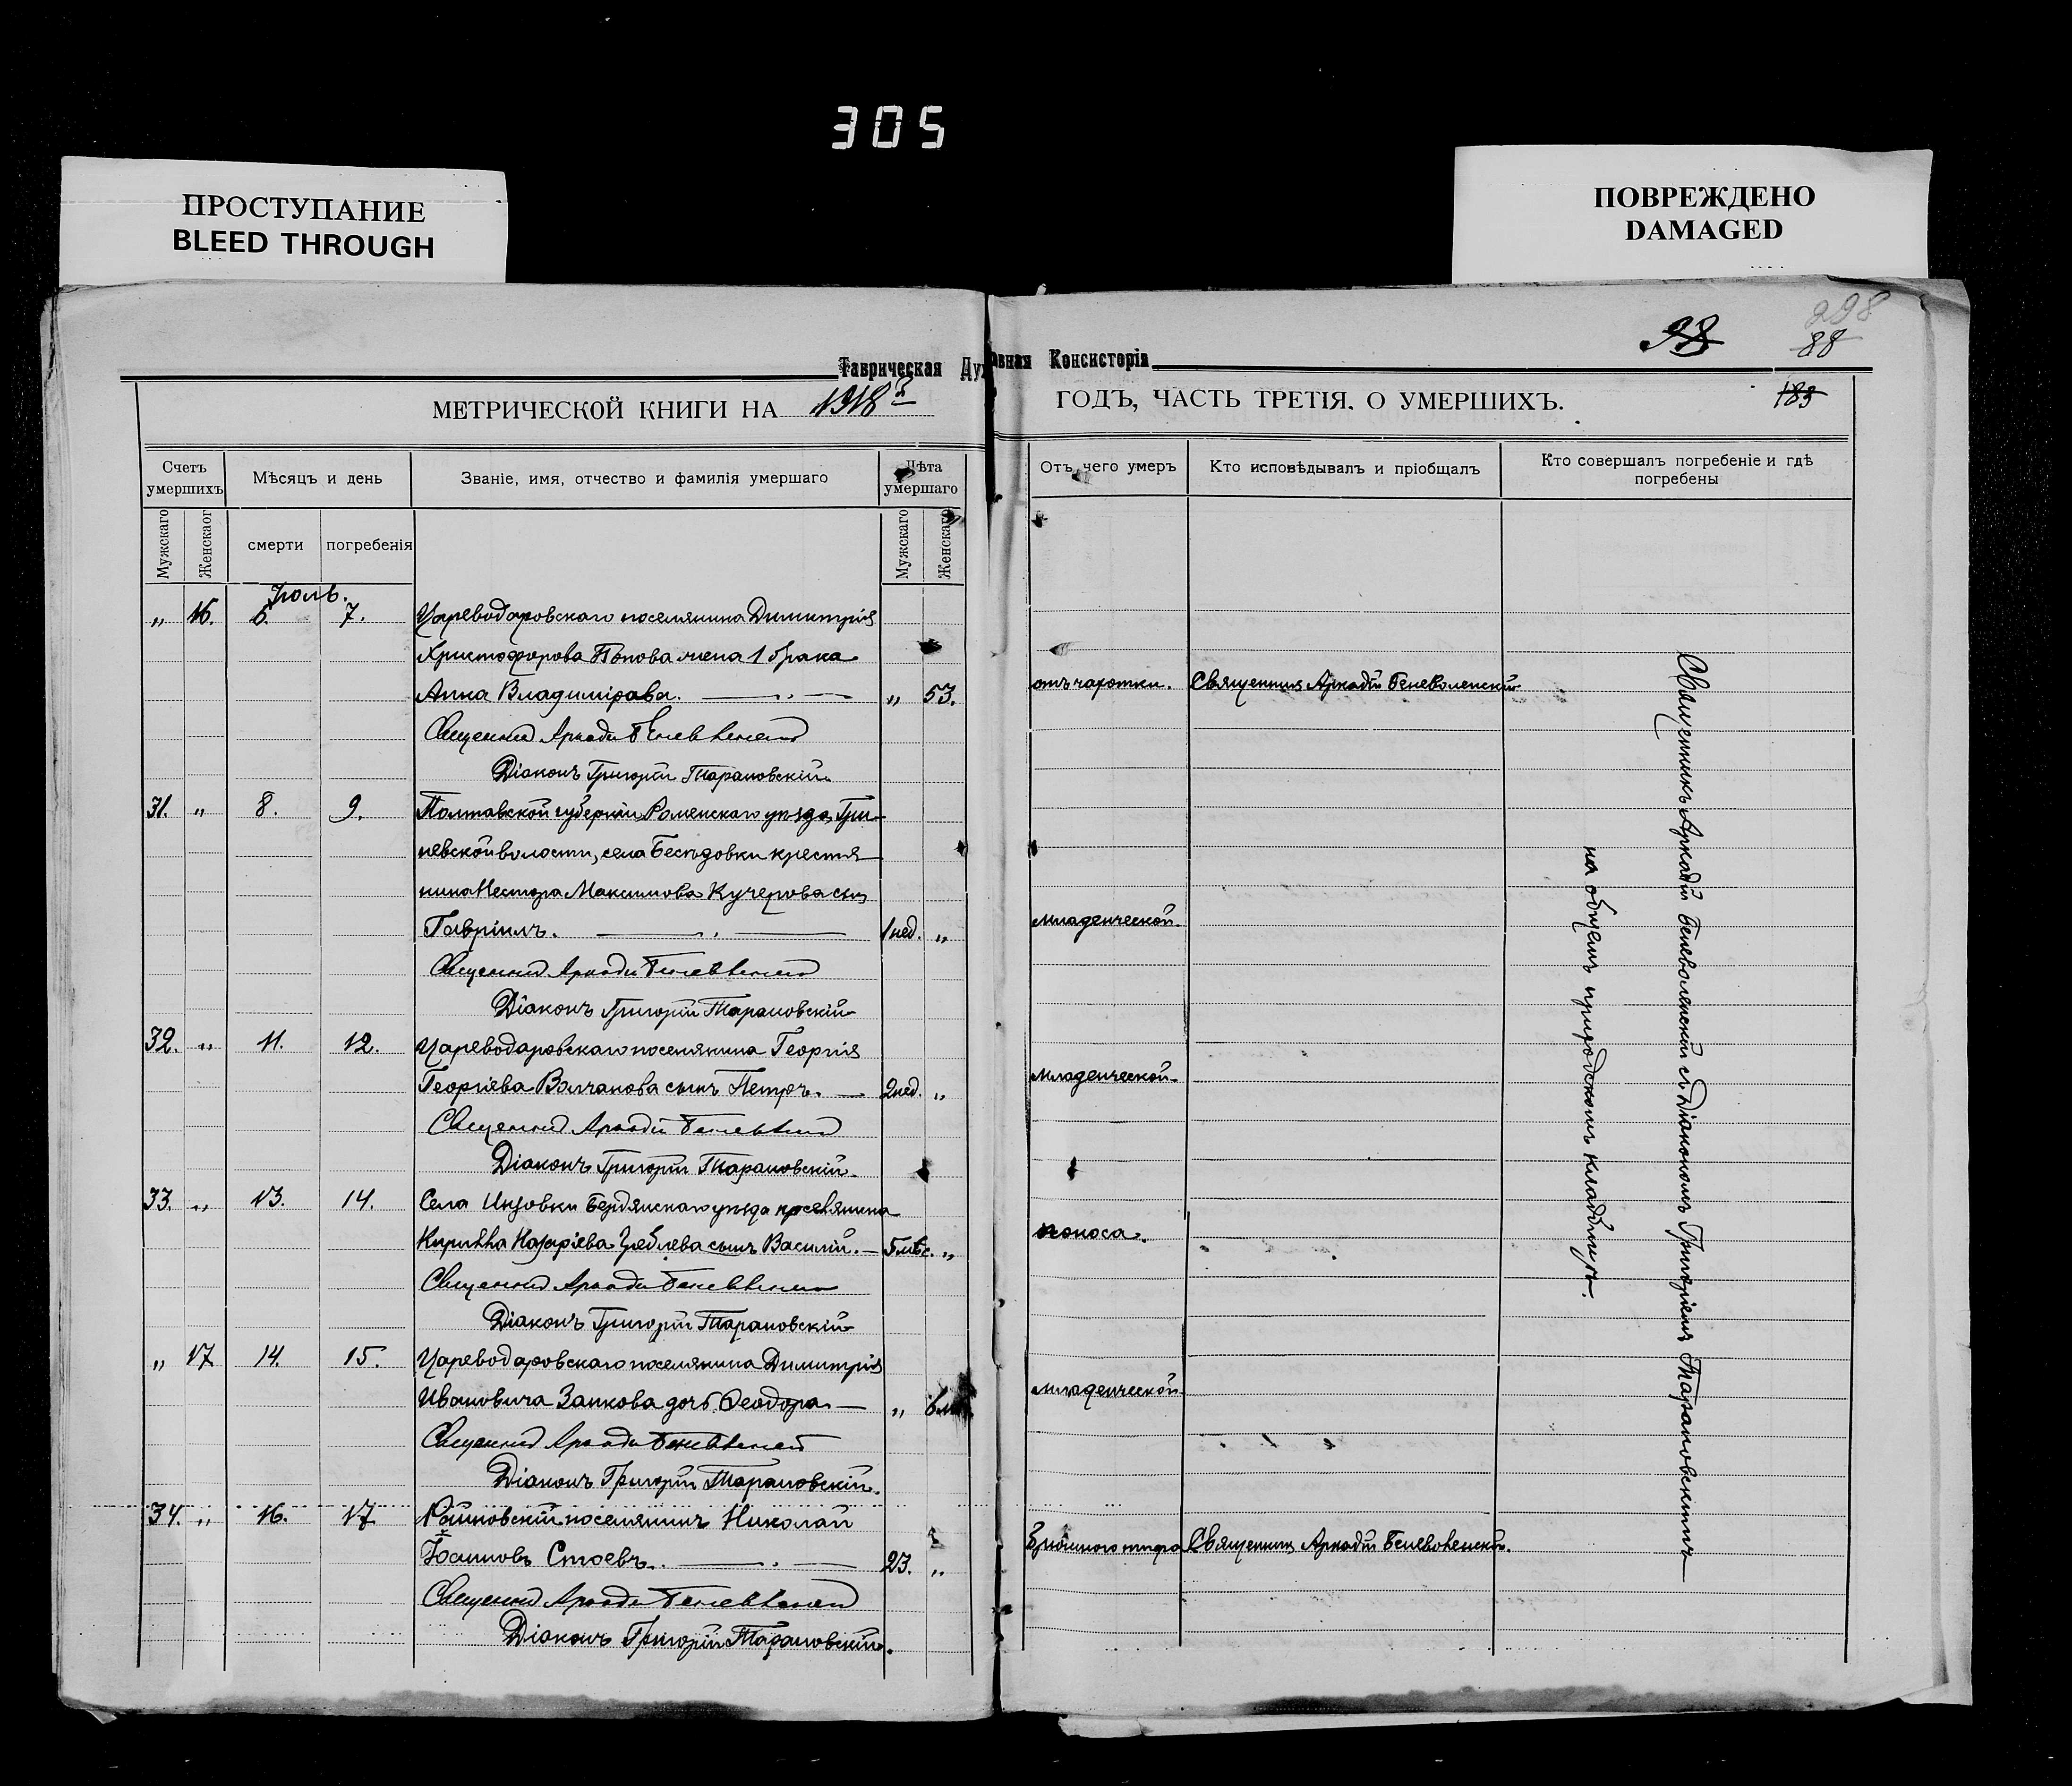 305
ПРОСТУПАНИЕ
BLEED THROUGH
ПОВРЕЖДЕНО
DAMAGED
298
98
88
183
Таврическая Духовная Консисторія
МЕТРИЧЕСКОЙ КНИГИ НА 1918 ГОДЪ, ЧАСТЬ ТРЕТІЯ. О УМЕРШИХЪ.
Счетъ умершихъ
Мѣсяцъ и день
Званіе, имя, отчество и фамилія умершаго
Лѣта умершаго
Отъ чего умеръ
Кто исповѣдывалъ и пріобщалъ
Кто совершалъ погребеніе и гдѣ погребены
Мужскаго
Женскаог
смерти
погребенія
Мужскаго
Женскаго
Іюль.
" 16. 6. 7. Цареводаровскаго поселянина Димитрія
Христофорова Попова жена 1 брака
Анна Владимірова. " 53. отъ чахотки. Священникъ Аркадій Беневоленскій
Священникъ Аркадій Беневоленскій
Діаконъ Григорій Тарановскій.
31. " 8. 9. Полтавской губерніи Роменскаго уѣзда, Гри-
невской волости, села Бесѣдовки крестья
нина Нестора Максимова Кучерова сынъ
Гавріилъ. 1 нед. " младенческой
Священникъ Аркадій Беневоленскій
Діаконъ Григорій Тарановскій
32. " 11. 12. Цареводаровскаго поселянина Георгія
Георгіева Волчанова сынъ Петръ. 2 нед. " младенческой
Священникъ Аркадій Беневоленскій
Діаконъ Григорій Тарановскій.
33. " 13. 14. Села Инзовки Бердянскаго уѣзда поселянина
Кирилла Назаріева сынъ Василій. 5 мѣс. " поноса.
Священникъ Аркадій Беневоленскій
Діаконъ Григорій Тарановскій
" 17 14. 15. Цареводаровскаго поселянина Димитрія
Ивановича Занкова дочь Ѳеодора " 6 младенческой
Священникъ Аркадій Беневоленскій
Діаконъ Григорій Тарановскій.
34. " 16. 17 Райновскій поселянинъ Николай
Іоанновъ Стоевъ. 23. " Брюшного тифа Священникъ Аркадій Беневоленскій.
Священникъ Аркадій Беневоленскій
Діаконъ Григорій Тарановскій.
Священникъ Аркадій Беневоленскій съ Діакономъ Григоріемъ Тарановскимъ
на общемъ приходскомъ кладбищѣ.